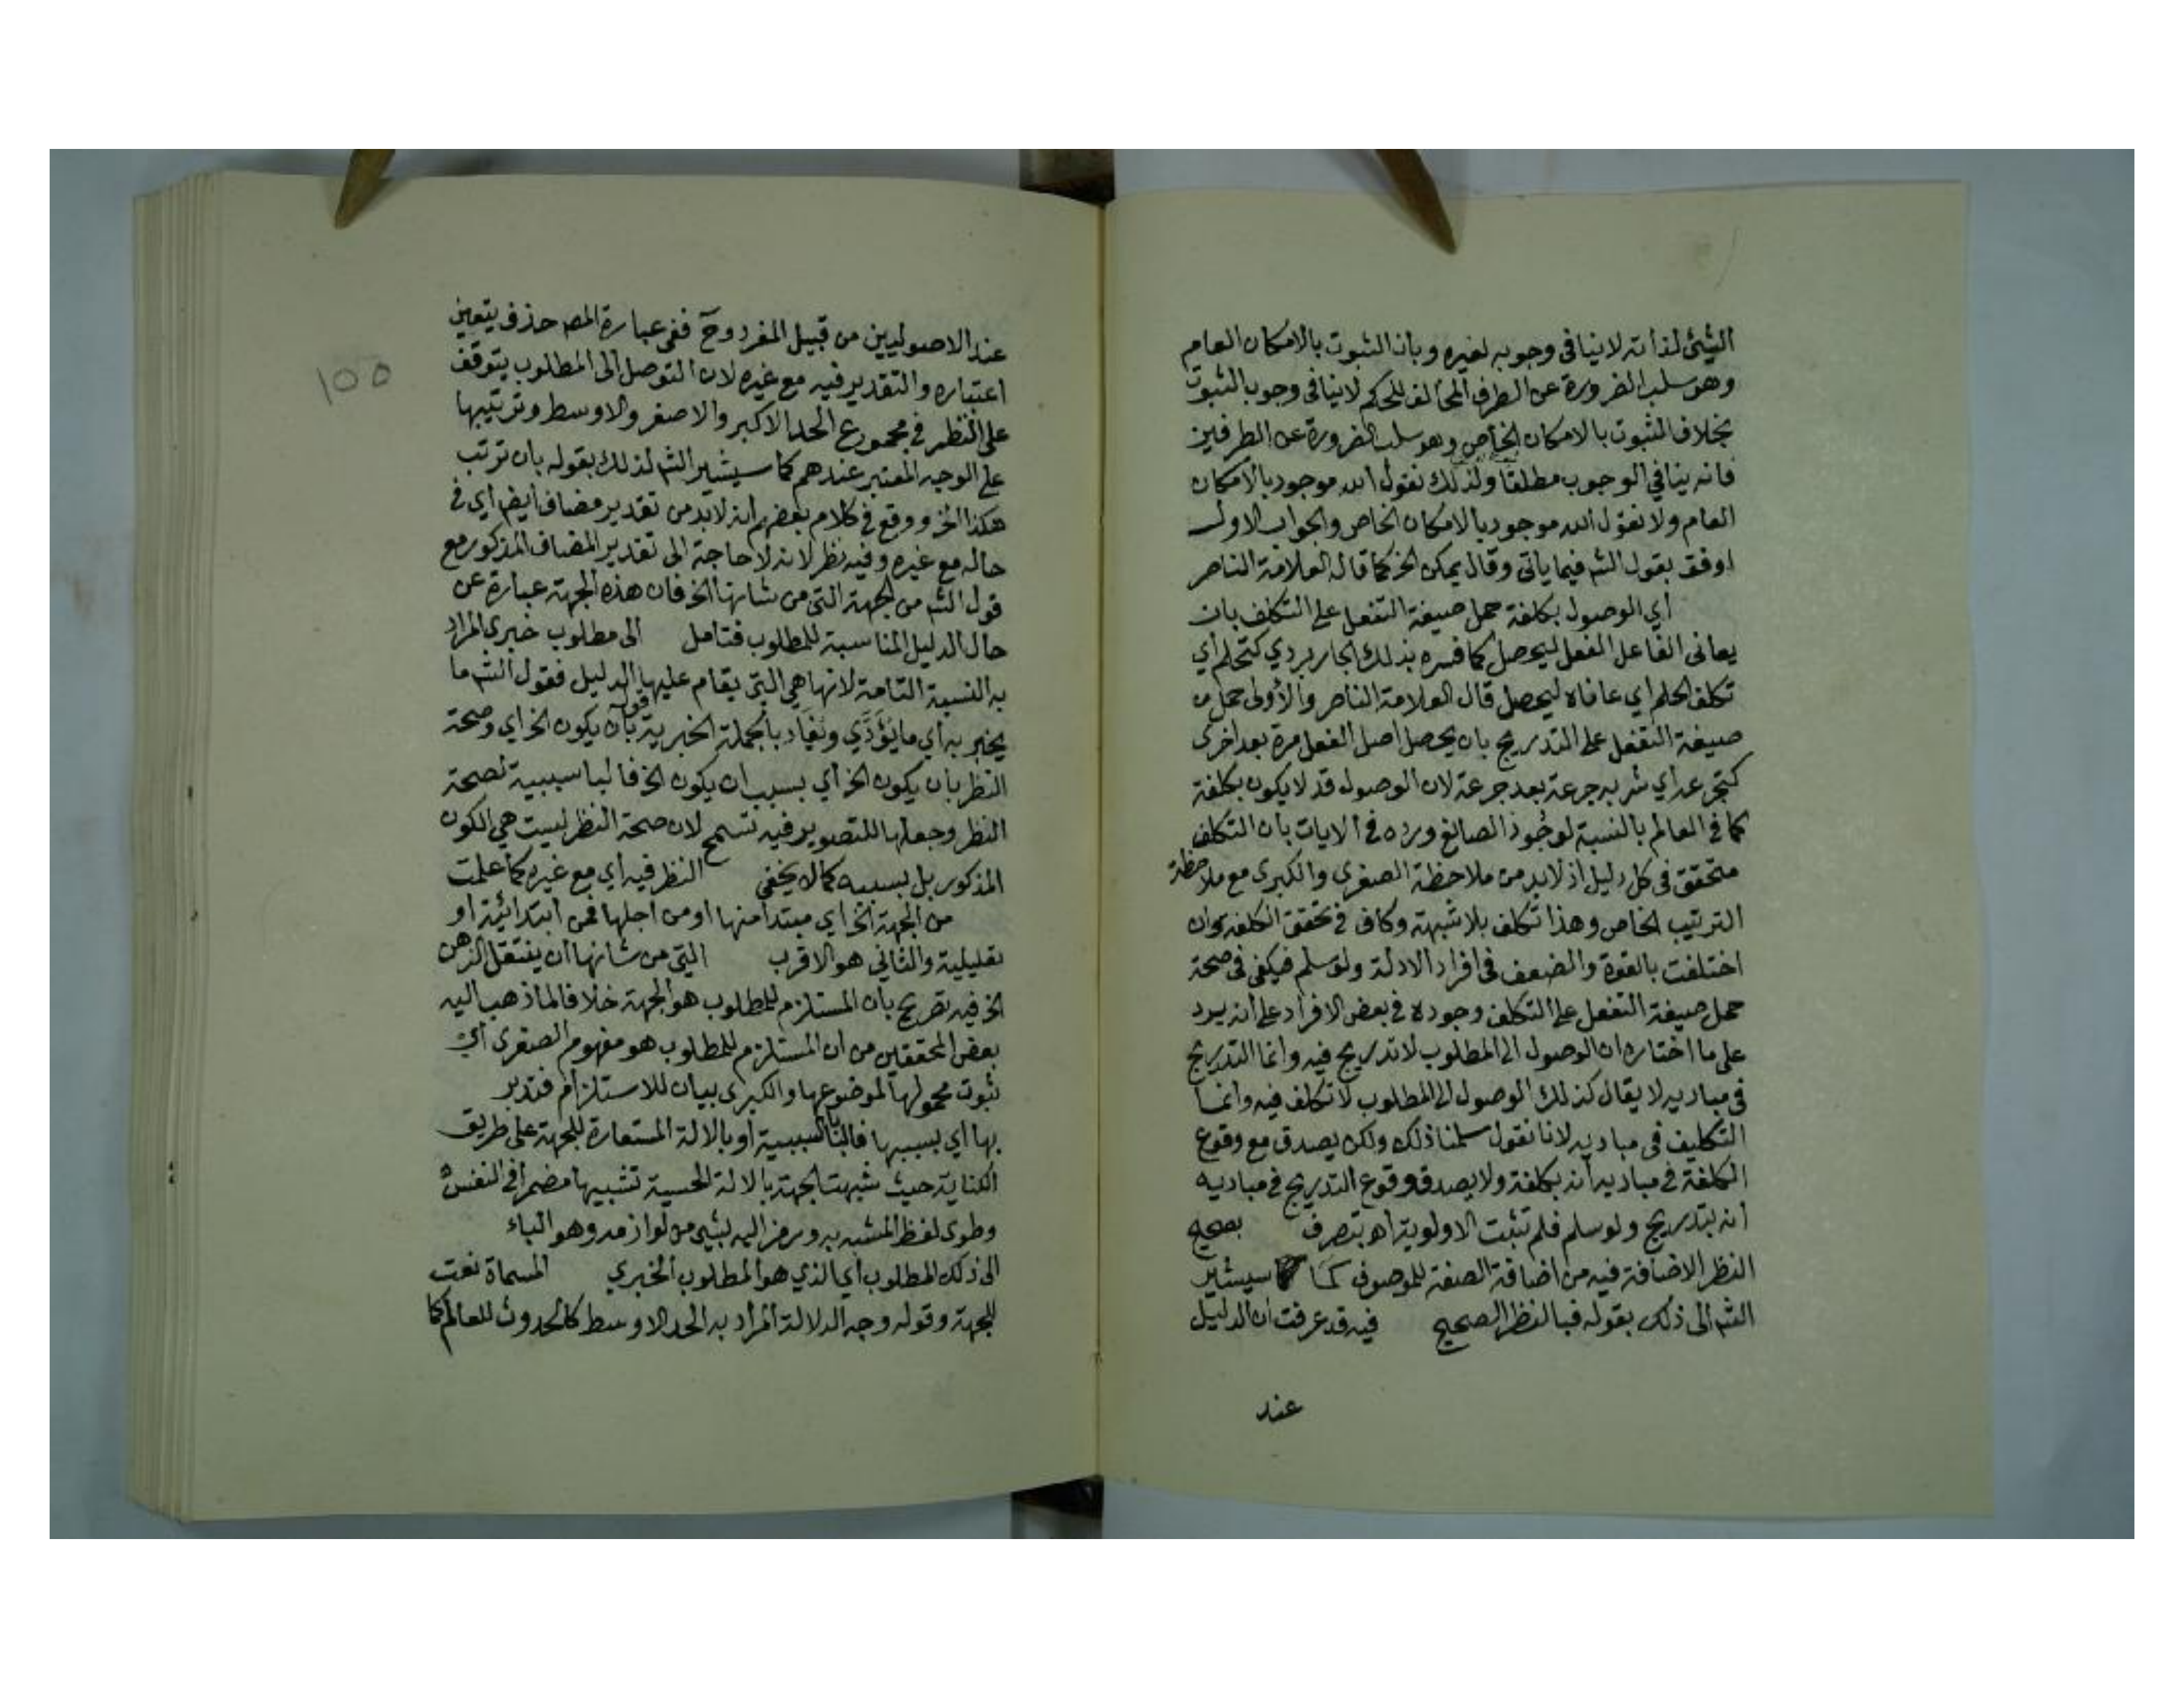 الشيئ لذاته لا ينافى وجوبه لغيره وبان الثبوت بالامكان العام
وهو سلب الضرورة عن الطرف المخالف للحكم لا ينافى وجوب الثبوت
بخلاف الثبوت بالامكان الخاص وهو سلب الضرورة عن الطرفين
فانه ينافي الوجوب مطلقا ولذلك نقول الله موجود بالامكان
العام ولا نقول الله موجود بالامكان الخاص والجواب الاول
اوفق بقول الشم فيما ياتى وقال يمكن الخ كما قاله العلامة الناصر
أي الوصول بكلفة حمل صيغة التفعل على التكلف بان
يعانى الفاعل الفعل ليحصل كما فسره بذلك الجاربردي كتحلم أي
تكلف الحلم اي عاناه ليحصل قال العلامة الناصر والأولى حمل
صيغة التفعل على التدريج بان يحصل اصل الفعل مرة بعد اخرى
كتجرعه أي شربه جرعة بعد جرعة لان الوصول قد لا يكون بكلفة
كما في العالم بالنسبة لوجود الصانع ورده في الايات بان التكلف
متحقق في كل دليل اذ لابد من ملاحظة الصغرى والكبرى مع ملاحظة
الترتيب الخاص وهذا تكلف بلا شبهة وكاف في تحقق الكلفة وان
اختلفت بالقوة والضعف فى افراد الادلة ولو سلم فيكفى فى صحة
حمل صيغة التفعل على التكلف وجوده في بعض الافراد على انه يرد
على ما اختاره ان الوصول الى المطلوب لا تدريج فيه وانما التدريج
فى مباديه لا يقال كذلك الوصول الى المطلوب لا تكلف فيه وانما
التكليف فى مباديه لانا نقول سلمنا ذلك ولكن يصدق مع وقوع
الكلفة في مباديه أنه بكلفة ولا يصدق وقوع التدريج في مباديه
أنه بتدريج ولو سلم فلم تثبت الاولوية اهـ بتصرف بصحيح
النظر الاضافة فيه من اضافة الصفة للموصوف كما سيشير
الشم الى ذلك بقوله فبالنظر الصحيح فيه قد عرفت ان الدليل
عند
١٥٥
عند الاصوليين من قبيل المفرد وحٓ ففى عبارة المصـ حذف يتعين
اعتباره والتقدير فيه مع غيره لان التوصل الى المطلوب يتوقف
على النظر في مجموع الحد الاكبر والاصغر والاوسط وترتيبها
على الوجه المعتبر عندهم كما سيشير الشم لذلك بقوله بان ترتب
هكذا الخ ووقع في كلام بعضهم انه لابد من تقدير مضاف ايضـ أي في
حاله مع غيره وفيه نظر لانه لا حاجة الى تقدير المضاف المذكور مع
قول الشم من الجهة التى من شانها الخ فان هذه الجهة عبارة عن
حال الدليل المناسبة للمطلوب فتامل الى مطلوب خبرى المراد
به النسبة التامة لانها هى التى يقام عليها الدليل فقول الشم ما
يخبر به أي ما يؤدَّي ويُفاد بالجملة الخبرية قوله بان يكون الخ اي وصحة
النظر بان يكون الخ أي بسبب ان يكون الخ فالبا سببية لصحة
النظر وجعلها للتصوير فيه تسمح لان صحة النظر ليست هى الكون
المذكور بل بسببه كما لا يخفى النظر فيه اي مع غيره كما علمت
من الجهة الخ اي مبتدأ منها او من اجلها فمن ابتدائية او
تعليلية والثانى هو الاقرب التى من شانها ان ينتقل الذهن
الخ فيه تصريح بان المستلزم للمطلوب هو الجهة خلافا لما ذهب اليه
بعض المحققين من ان المستلزم للمطلوب هو مفهوم الصغرى أي
ثبوت محمولها لموضوعها والكبرى بيان للاستلزام فتدبر
بها اي بسببها فالبا للسببية او بالالة المستعارة للجهة على طريق
الكناية حيث شبهت الجهة بالالة الحسية تشبيها مضمرا في النفس
وطوى لفظ المشبه به ورمز اليه بشئ من لوازمه وهو الباء
الى ذلك المطلوب أي الذي هو المطلوب الخبري المسماة نعت
للجهة وقوله وجه الدلالة المراد به الحد الاوسط كالحدوث للعالم كما